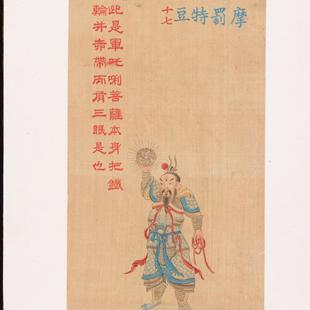 摩罰特豆
十七
此是軍吒唎菩薩本身把鐵
輪并赤帶丙肩三眼是也